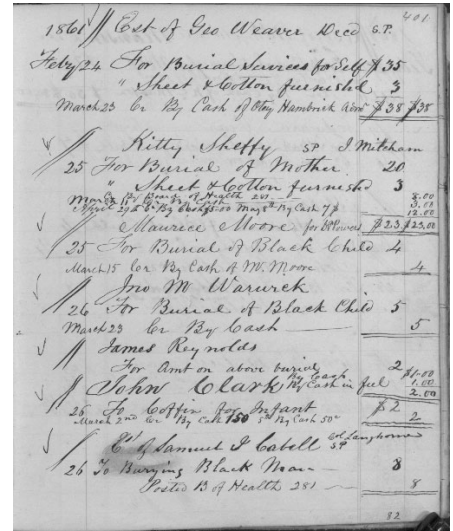 401
1861 Est of Geo Weaver Decd S.P.
Feby 24 For Burial Services for Self $35
" Sheet & Cotton furnished 3
March 23 Cr By Cash of Otey Hambrick Admr $38 $35
Kitty Sheffy SP J Mitcham
25 For Burial of Mother 20
" Sheet & Cotton furnished 3
March By Board of Health 281 8.00
April 29th By Cash 3.00 May By Cash 7$ 3.00
12.00
Maurice Moore for Powers $23 $23.00
25 For Burial of Black Child 4
March 15 Cr By Cash of M. Moore 4
Jno M Warwick
26 For Burial of Black Child 5
March 23 Cr By Cash 5
James Reynolds
For Amt on above burial 2
By Cash $1.00
John Clark By Cash in full 1.00
2.00
26 To Coffin for Infant $2
March 2nd Cr By Cash 150 5th By Cash 50c 2
Est of Samuel J Cabell Col Langhorne SP
26 To Burying Black Man 8
Posted B of Health 281 8
82